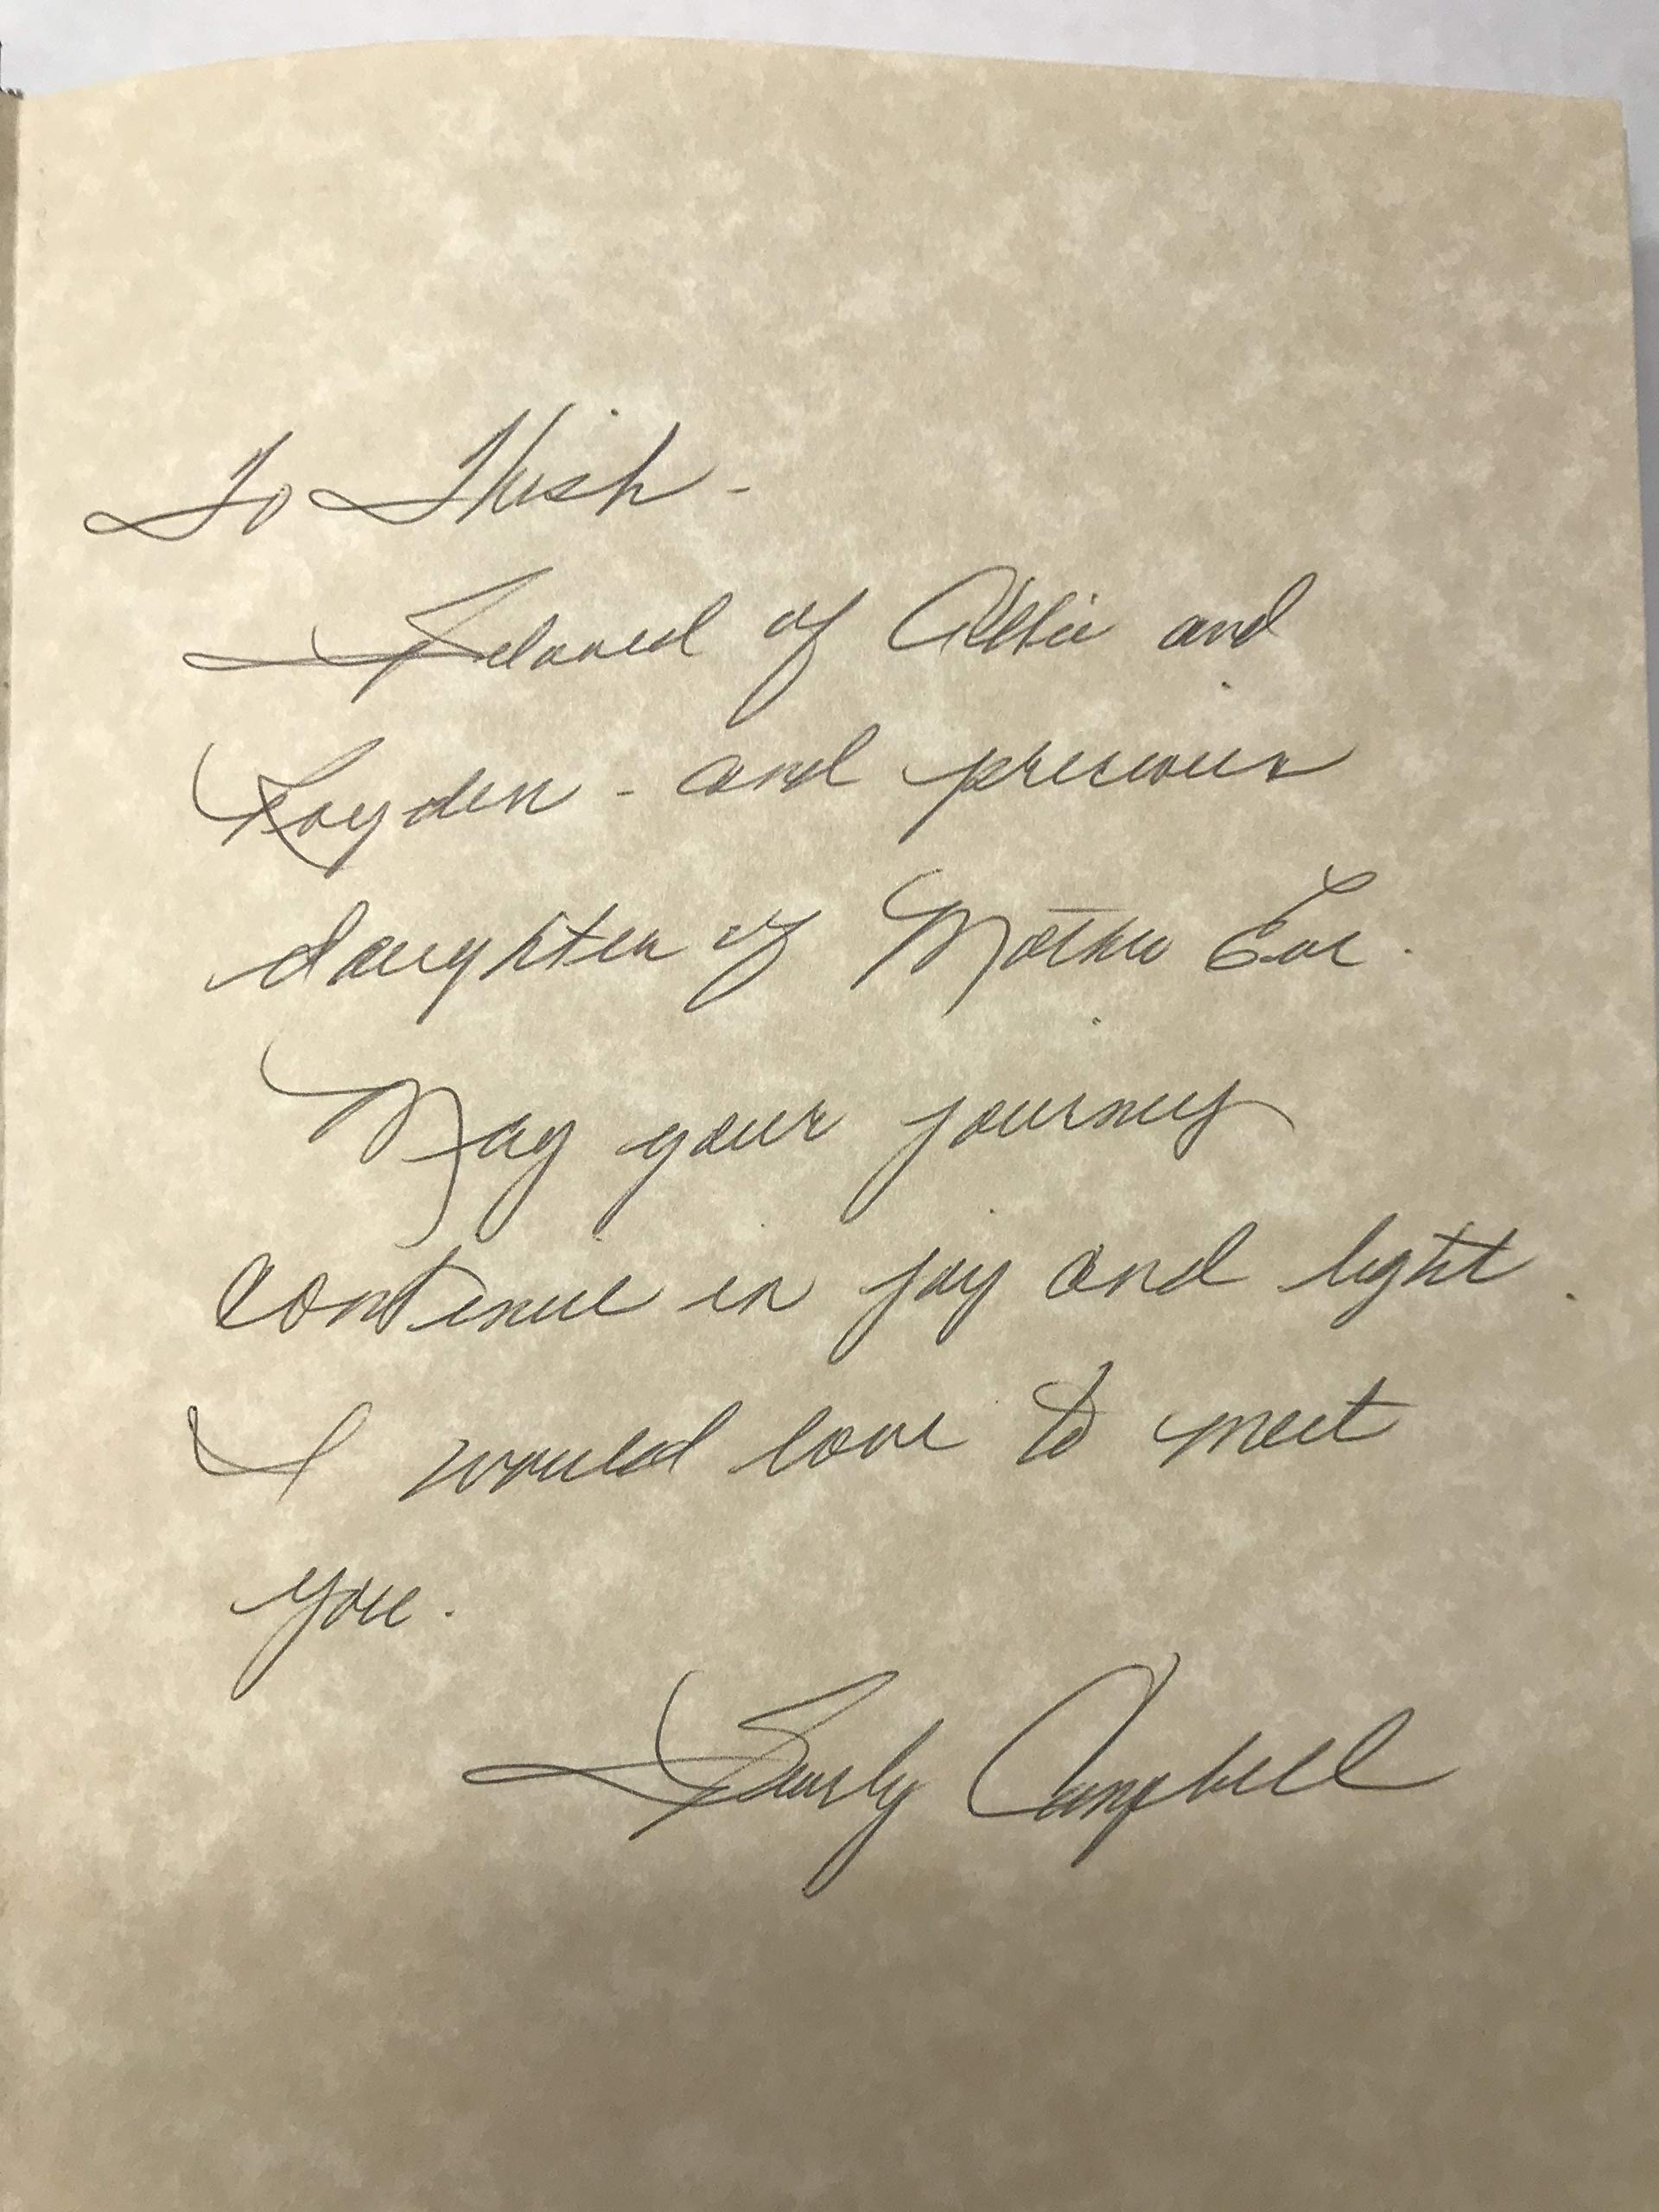 To Trish -
Beloved of Ollie and
Royden - and precious
daughter of Mother Eve.
May your journey
continue in joy and light.
I would love to meet
you.
Beverly Campbell